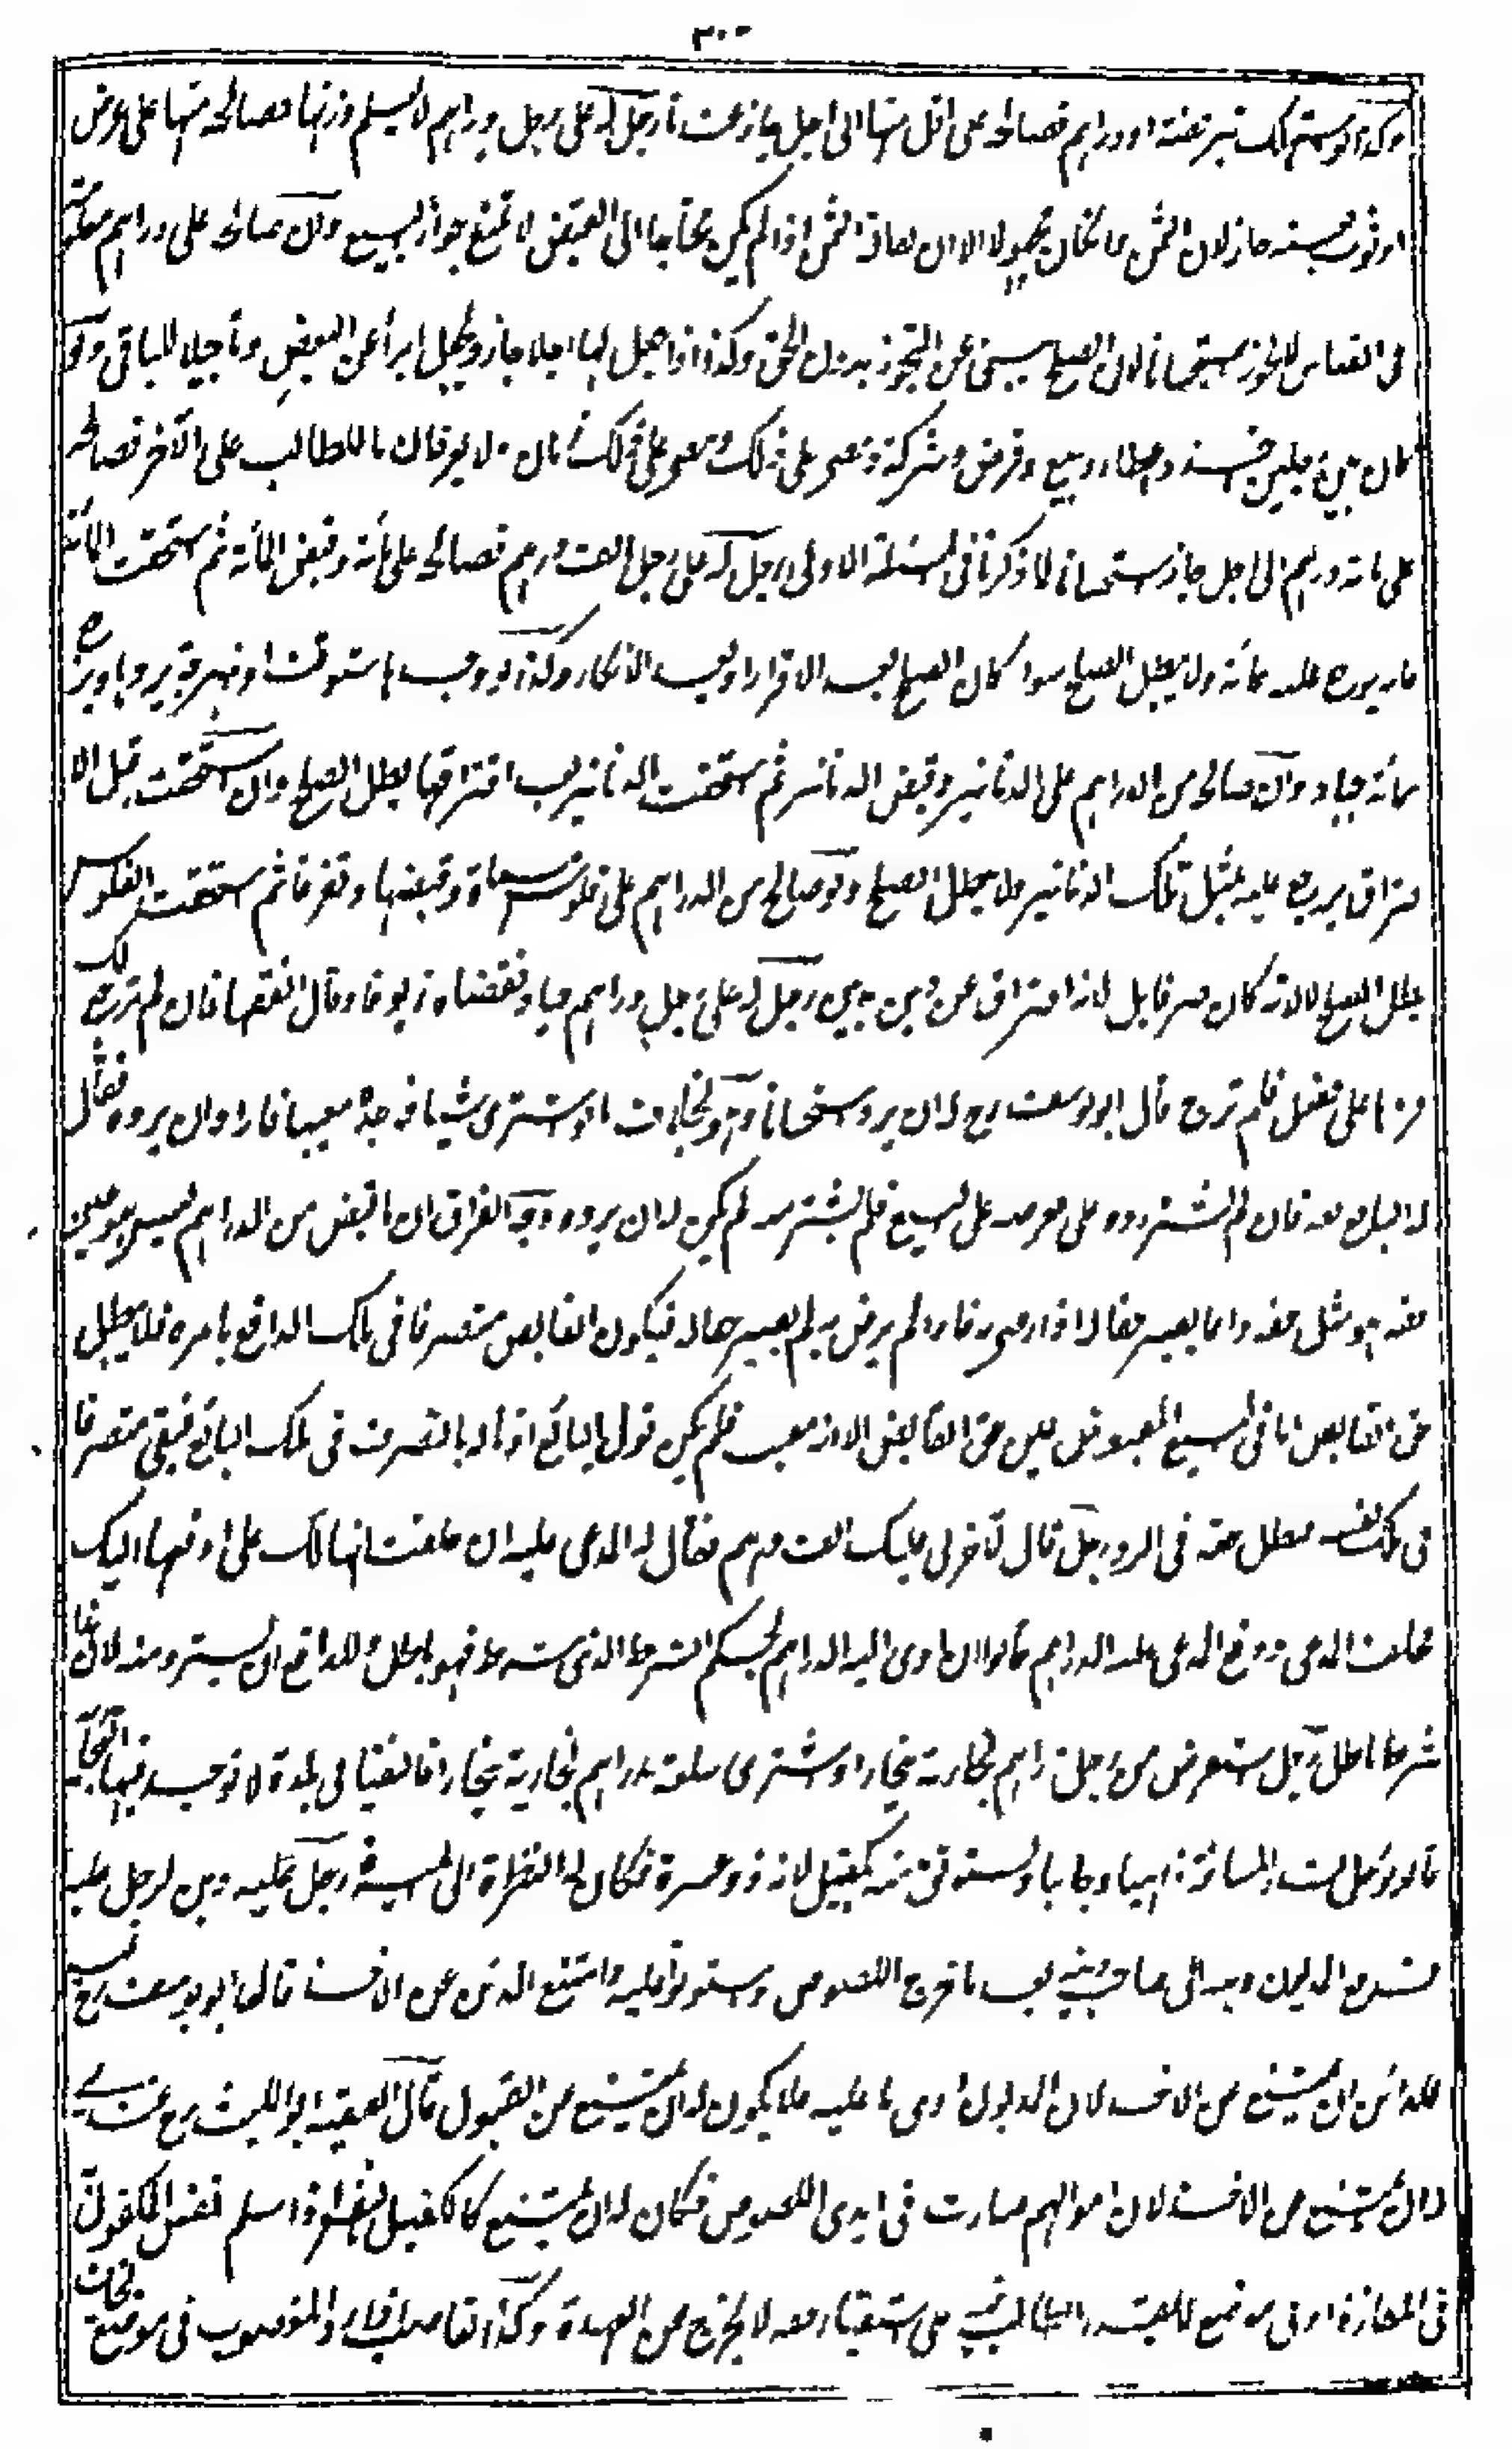 ٣٠٠
وكذا لو استهلك تبر فضة او دراهم فصالحه على اقل منها الى اجل جاز رجل له على رجل دراهم لا يعلم وزنها فصالحه منها على عرض
او ثوب بعينه جاز لان الثمن كان مجهولا الا ان جهالة الثمن اذا لم يكن محتاجا الى القبض لا تمنع جواز البيع وان صالحه على دراهم معلومة
فى القياس لا يجوز استحسانا لان الصلح ينبئ عن التجوز بدون الحق وكذا اذا جعل لها اجلا جاز ويجعل ابراء عن البعض وتأجيلا للباقى ولو
كان بين رجلين اخذ وعطاء وبيع وقرض وشركة ومضى على ذلك زمان ولا يعرفان ما للطالب على الآخر فصالحه
على مائة درهم الى اجل جاز استحسانا لما ذكرنا فى المسئلة الاولى رجل له على رجل الف درهم فصالحه على مائة وقبض المائة ثم استحقت المائة
فانه يرجع عليه بمائة ولا يبطل الصلح سواء كان الصلح بعد الاقرار او بعد الانكار وكذا لو وجدها ستوقة او نبهرجة يردها ويرجع
بمائة جياد وان صالحه من الدراهم على الدنانير وقبض الدنانير ثم استحقت الدنانير بعد افتراقهما بطل الصلح وان استحقت قبل الا
فتراق يرجع عليه بمثل تلك الدنانير ولا يبطل الصلح ولو صالح من الدراهم على فلوس مسماة وقبضها وتفرقا ثم استحقت الفلوس
بطل الصلح لانه كان صرفا بل لانه افتراق عن دين بدين رجل له على رجل دراهم جياد فقضاه زيوفا وقال انفقها فان لم ترج لك
فردها على ففعل فلم ترج قال ابو يوسف رح له ان يرد استحسانا وهو بخلاف ما لو اشترى شيئا فوجده معيبا فاراد ان يرده فقال
له البائع بعه فان لم يشتر رده على فعرضه على البيع فلم يشتر منه لم يكن له ان يرده ووجه الفراق ان ما قبض من الدراهم ليس هو عين
حقه بل هو مثل حقه وانما يصير حقا له اذا رضى به فاذا لم يرض به لم يصير حقا له فيكون القابض متصرفا فى ملك الدافع بامره فلا يبطل
حق القابض اما فى البيع المقبوض عين حق القابض الا انه معيب فلم يكن قول البائع اذنا له بالتصرف فى ملك البائع فبقى متصرفا
فى ملك نفسه فبطل حقه فى الرد رجل قال لآخر لى عليك الف درهم فقال له المدعى عليه ان حلفت انها لك على اديتها اليك
فحلف المدعى ودفع المدعى عليه الدراهم قالوا ان ادى اليه الدراهم بحكم الشرط الذى شرط فهو باطل وللدافع ان يسترد منه لان هذا
شرط باطل رجل استقرض من رجل دراهم بخارية ببخارا او اشترى سلعة بدراهم بخارية ببخارا فالتقيا فى بلدة لا توجد فيها البخارية
قالوا يؤجل قدر المسافة ذاهبا وجائيا ويستوثق منه بكفيل لانه ذو عسرة فكان له النظرة الى الميسرة رجل عليه دين لرجل عليه
فدفع المديون دينه الى صاحب دينه بعد ما خرج اللصوص واستولوا عليه وامتنع الدائن عن الاخذ قال ابو يوسف رح ليس
للدائن ان يمتنع من الاخذ لان المديون ادى ما عليه فلا يكون له ان يمتنع من القبول قال الفقيه ابو الليث رح عندى
له ان يمتنع من الاخذ لان اموالهم صارت فى ايدى اللصوص فكان له ان يمتنع كالكفيل بنفس اذا سلم نفس المكفول
فى المفازة او فى موضع لا يقدر الطالب على استيفاء حقه لا يخرج عن العهدة وكذا الغاصب اذا رد المغصوب فى موضع يخاف